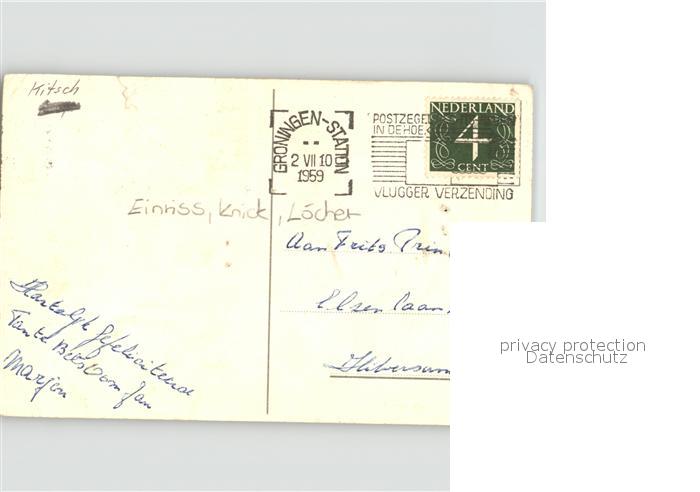 Kitsch
GRONINGEN-STATION
2 VII 10
1959
POSTZEGEL
IN DE HOE
VLUGGER VERZENDING
NEDERLAND
4
CENT
Einriss, Knick, Löcher
Aan Frits Prin
Elsen laan
Hilversum
Hartelijk gefeliciteerd
Tante Bets Oom Jan
Marjon
privacy protection
Datenschutz